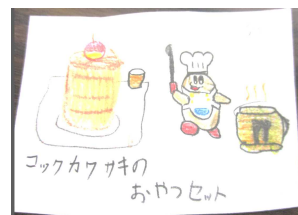 コックカワサキの
おやつセット